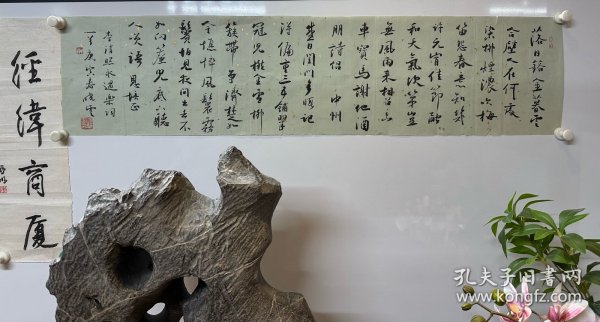 落日鎔金暮雲
合壁人在何處
染柳煙濃吹梅
笛怨春意知幾
許元宵佳節融
和天氣次第豈
無風雨來相召香
車寶馬謝他酒
朋詩侶 中州
盛日閨門多暇記
得偏重三五鋪翠
冠兒撚金雪柳
簇帶爭濟楚如
今憔悴風鬟霧
鬢怕見夜間出去不
如向簾兒底下聽
人笑語
李清照永遇樂詞
庚寅春曉雲
經緯商厦
孔夫子旧书网
www.kongfz.com